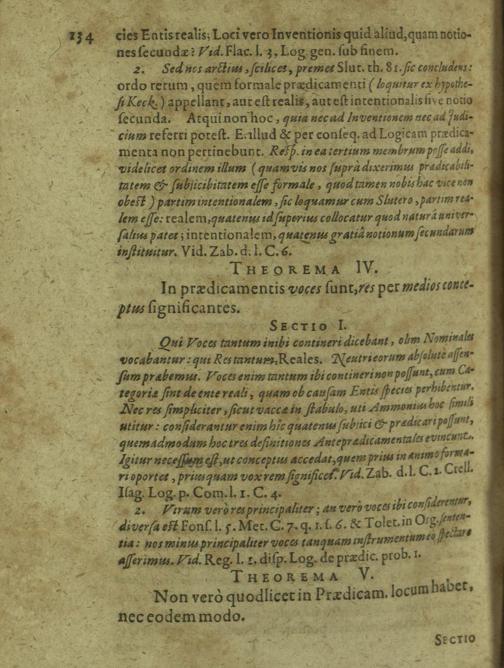 134
cies Entis realis; Loci vero Inventionis quid aliud, quam notio-
nes secundæ? Vid. Flac. l. 3. Log. gen. sub finem.
2. Sed nos arctius, scilicet, premet Slut. th. 81. sic concludens:
ordo rerum, quem formale prædicamenti (loquitur ex hypothe-
si Keck.) appellant, aut est realis, aut est intentionalis sive notio
secunda. Atqui non hoc, quia nec ad Inventionem nec ad Judi-
cium referri potest. E. illud & per conseq. ad Logicam prædica-
menta non pertinebunt. Resp. in ea tertium membrum posse addi,
videlicet ordinem illum (quamvis nos suprà dixerimus prædicabili-
tatem & subjicibilitatem esse formale, quod tamen nobis hac vice non
obest) partim intentionalem, sic loquamur cum Slutero, partim rea-
lem esse: realem, quatenus id superius collocatur quod naturâ univer-
salius patet; intentionalem, quatenus gratiâ notionum secundarum
instituitur. Vid. Zab. d. l. C. 6.
THEOREMA IV.
In prædicamentis voces sunt, res per medios conce-
ptus significantes.
SECTIO I.
Qui Voces tantum inibi contineri dicebant, olim Nominales
vocabantur: qui Res tantum, Reales. Neutri eorum absolutè assen-
sum præbemus. Voces enim tantum ibi contineri non possunt, cum Ca-
tegoriæ sint de ente reali, quam ob causam Entis species perhibentur.
Nec res simpliciter, sicut vaccæ in stabulo, uti Ammonius hoc simili
utitur: considerantur enim hîc quatenus subjici & prædicari possunt,
quemadmodum hoc tres definitiones Antepradicamentales evincunt.
Igitur necessum est, ut conceptus accedat, quem prius in animo forma-
ri oportet, priusquam vox rem significet. Vid. Zab. d. l. C. 2. Crell.
Isag. Log. p. Com. l. 1. C. 4.
2. Utrum verò res principaliter; an verò voces ibi considerentur,
diversa est Fons. l. 5. Met. C. 7. q. 1. s. 6. & Tolet. in Org. senten-
tia: nos minus principaliter voces tanquam instrumentum eò spectare
asserimus. Vid. Reg. l. 2. disp. Log. de prædic. prob. 1.
THEOREMA V.
Non verò quodlicet in Prædicam. locum habet,
nec eodem modo.
SECTIO